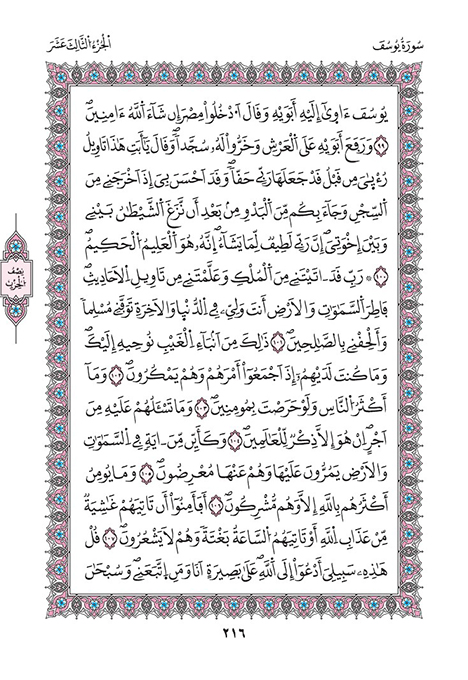 سُورَةُ يُوسُفَ
اَلْجُزْءُ الثَّالِثَ عَشَرَ
يُوسُفَ ءَاو۪ىٰٓ إِلَيْهِ أَبَوَيْهِ وَقَالَ اَ۟دْخُلُواْ مِصْرَ إِن شَآءَ اَ۬للَّهُ ءَامِنِينَۖ
٩٩ وَرَفَعَ أَبَوَيْهِ عَلَى اَ۬لْعَرْشِ وَخَرُّواْ لَهُۥ سُجَّداٗۖ وَقَالَ يَٰٓأَبَتِ هَٰذَا تَاوِيلُ
رُءْيٰ۪يَ مِن قَبْلُ قَدْ جَعَلَهَا رَبِّے حَقّاٗۖ وَقَدَ اَحْسَنَ بِيَ إِذَ اَخْرَجَنِے مِنَ
اَ۬لسِّجْنِ وَجَآءَ بِكُم مِّنَ اَ۬لْبَدْوِ مِنۢ بَعْدِ أَن نَّزَغَ اَ۬لشَّيْطَٰنُ بَيْنِے
وَبَيْنَ إِخْوَتِيَۖ إِنَّ رَبِّے لَطِيفٞ لِّمَا يَشَآءُۖ انَّهُۥ هُوَ اَ۬لْعَلِيمُ اُ۬لْحَكِيمُۖ
١٠٠ رَبِّ قَدَ اٰتَيْتَنِے مِنَ اَ۬لْمُلْكِ وَعَلَّمْتَنِے مِن تَاوِيلِ اِ۬لَاحَادِيثِۖ
فَاطِرَ اَ۬لسَّمَٰوَٰتِ وَالَارْضِ أَنتَ وَلِيِّۦ فِے اِ۬لدُّنْي۪ا وَالَاخِرَةِ تَوَفَّنِے مُسْلِماٗ
وَأَلْحِقْنِے بِالصَّٰلِحِينَۖ ١٠١ ذَٰلِكَ مِنَ اَنۢبَآءِ اِ۬لْغَيْبِ نُوحِيهِ إِلَيْكَۖ
وَمَا كُنتَ لَدَيْهِمُۥٓ إِذَ اَجْمَعُوٓاْ أَمْرَهُمْ وَهُمْ يَمْكُرُونَۖ ١٠٢ وَمَآ
أَكْثَرُ اُ۬لنَّاسِ وَلَوْ حَرَصْتَ بِمُومِنِينَۖ ١٠٣ وَمَا تَسْـَٔلُهُمْ عَلَيْهِ مِنَ
اَجْرٍۖ اِنْ هُوَ إِلَّا ذِكْرٞ لِّلْعَٰلَمِينَۖ ١٠٤ وَكَأَيِّن مِّنَ اٰيَةٖ فِے اِ۬لسَّمَٰوَٰتِ
وَالَارْضِ يَمُرُّونَ عَلَيْهَا وَهُمْ عَنْهَا مُعْرِضُونَۖ ١٠٥ وَمَا يُومِنُ
أَكْثَرُهُم بِاللَّهِ إِلَّا وَهُم مُّشْرِكُونَۖ ١٠٦ أَفَأَمِنُوٓاْ أَن تَاتِيَهُمْ غَٰشِيَةٞ
مِّنْ عَذَابِ اِ۬للَّهِ أَوْ تَاتِيَهُمُ اُ۬لسَّاعَةُ بَغْتَةٗ وَهُمْ لَا يَشْعُرُونَۖ ١٠٧ قُلْ
هَٰذِهِۦ سَبِيلِيَ أَدْعُوٓاْ إِلَى اَ۬للَّهِۖ عَلَىٰ بَصِيرَةٍ اَنَا وَمَنِ اِ۪تَّبَعَنِےۖ وَسُبْحَٰنَ
نِصْف
الْحِزْب
٢١٦